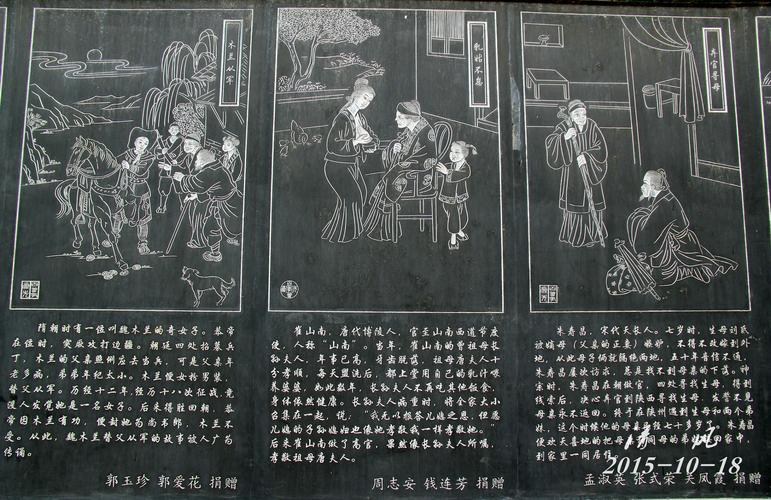 木兰从军
隋朝时有一位叫魏木兰的奇女子。恭帝
在位时，突厥攻打边疆。朝廷四处招募兵
丁，木兰的父亲照例应去当兵，可是父亲年
老多病，弟弟年纪太小。木兰便女扮男装，
替父从军。历经十二年，经历十八次征战，竟
没人发觉她是一名女子。后来得胜回朝，恭
帝因木兰有功，便封她为尚书郎，木兰不
受。从此，魏木兰替父从军的故事被人广为
传诵。
郭玉珍 郭爱花 捐赠
乳姑不怠
崔山南，唐代博陵人，官至山南西道节度
使，人称“山南”。当年，崔山南的曾祖母长
孙夫人，年事已高，牙齿脱落，祖母唐夫人十
分孝顺，每天盥洗后，都上堂用自己的乳汁喂
养婆婆，如此数年，长孙夫人不再吃其他饭食，
身体依然健康。长孙夫人病重时，将全家大小
召集在一起，说：“我无以报答儿媳之恩，但愿
儿媳的子孙媳妇也像她孝敬我一样孝敬她。”
后来崔山南做了高官，果然像长孙夫人所嘱，
孝敬祖母唐夫人。
周志安 钱连芳 捐赠
弃官寻母
朱寿昌，宋代天长人。七岁时，生母刘氏
被嫡母（父亲的正妻）嫉妒，不得不改嫁到外
地，从此母子俩就隔绝两地，五十年音信不通，
朱寿昌屡次访求，总是找不到母亲的下落。神
宗时，朱寿昌在朝做官，四处寻找生母，得到
线索后，决心弃官到陕西寻找生母，发誓不见
母亲永不返回。终于在陕州遇到生母和两个弟
妹，这个时候他的母亲已有七十多岁了。朱昌
便欢天喜地的把母亲
到家里一同居住
孟淑英 张式宋 关凤霞 捐赠
清风
2015-10-18